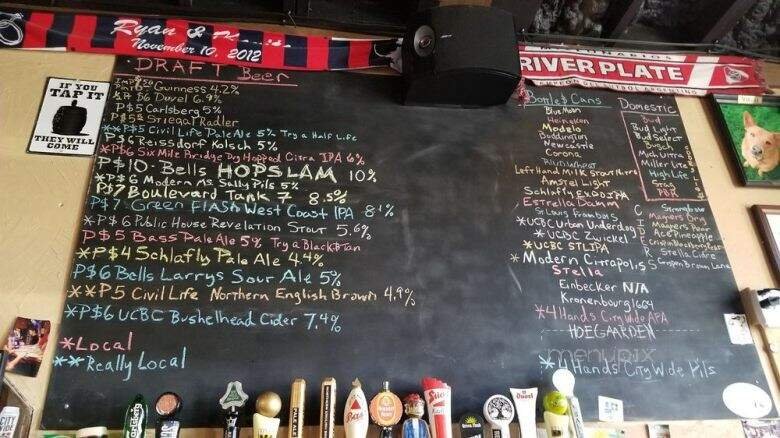 Ryan &
November 10, 2012
RIVER PLATE
IF YOU
TAP IT
THEY WILL
COME
DRAFT Beer
Guinness 4.2%
P$6 Duvel 6.9%
P$5 Carlsberg 5%
P$5 Stiegal Radler
**P$5 Civil Life Pale Ale 5% Try a Half Life
P$6 Reissdorf Kolsch 5%
*P$6 Six Mile Bridge Dry Hopped Citra IPA 6%
P$10 Bells HOPSLAM 10%
*P$6 Modern Ms. Sally Pils 5%
P$7 Boulevard Tank 7 8.5%
P$7 Green Flash West Coast IPA 8.1%
*P$6 Public House Revelation Stout 5.6%
P$5 Bass Pale Ale 5% Try a Black & Tan
*P$4 Schlafly Pale Ale 4.4%
P$6 Bells Larrys Sour Ale 5%
**P5 Civil Life Northern English Brown 4.9%
*P$6 UCBC Bushelhead Cider 7.4%
*Local
**Really Local
Bottle $ Cans
Blue Moon
Heineken
Modelo
Boddington
Newcastle
Corona
Left Hand Milk Stout Nitro
Amstel Light
Schlafly Expo IPA
Estrella Damm
St Louis Framboise
*UCBC Urban Underdog
*UCBC Zwickel
*UCBC STLIPA
*Modern Citrapolis
Stella
Einbecker N/A
Kronenbourg 1664
*4 Hands City Wide APA
HOEGAARDEN
*4 Hands City Wide Pils
Domestic
Bud
Bud Light
Bud Select
Busch
Mich Ultra
Miller Lite
High Life
Stag
PBR
CIDERS
Strongbow
Magners Orig
Magners Pear
Ace Pineapple
Crispin Blackberry
Stella Cidre
Crispin Brown Lane
menupix